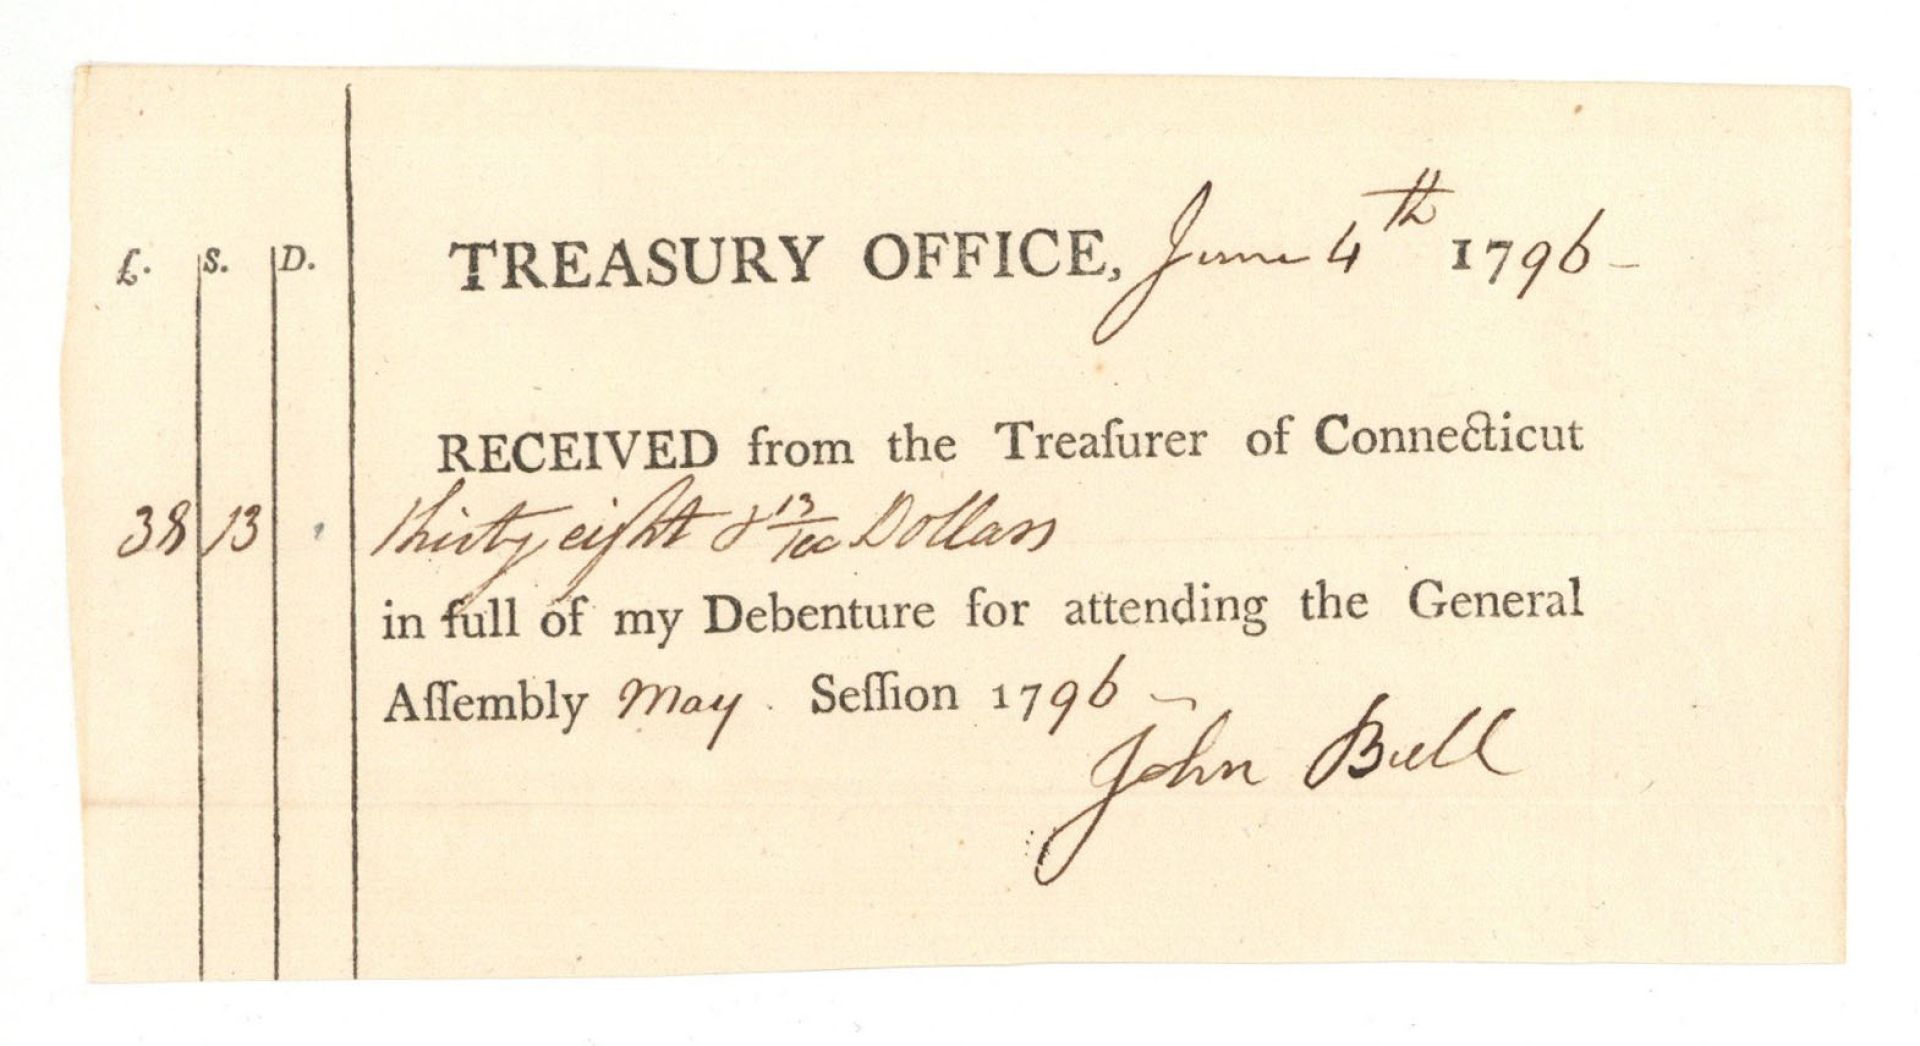 £. S. D.
TREASURY OFFICE, June 4th 1796
RECEIVED from the Treaſurer of Connecticut
38 13 Thirty eight & 13/100 Dollars
in full of my Debenture for attending the General
Aſſembly May Seſſion 1796
John Buell